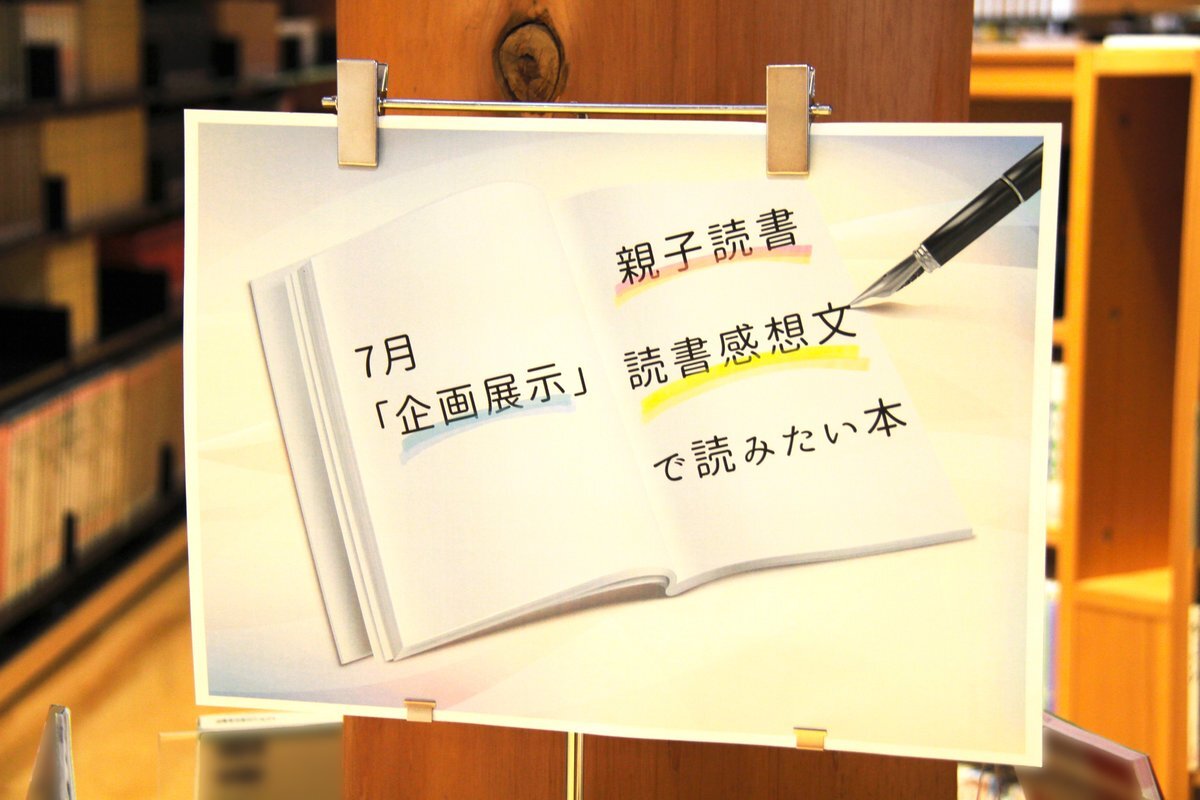 7月
「企画展示」
親子読書
読書感想文
で読みたい本